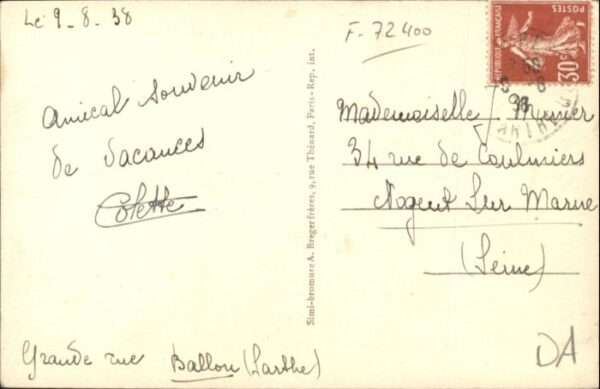 Le 9-8-38
F-72400
Amical souvenir
de vacances
Colette
Grande rue Ballon (Sarthe)
Simi-bromure A. Breger frères, 9, rue Thénard, Paris - Rep. int.
POSTES
RÉPUBLIQUE FRANÇAISE
30c
Mademoiselle Munier
34 rue de Coulmiers
Nogent Sur Marne
(Seine)
DA